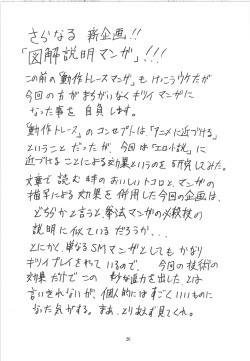 さらなる 新企画!!
「図解説明マンガ」!!!
この前の「動作トレースマンガ」もけっこうウケたが
今回の方がまちがいなくキツイマンガに
なった事を自負します。
「動作トレース」のコンセプトは「アニメに近づける」
ということだったが、今回は「エロ小説」に
近づけることによる効果というのを研究してみた。
文章で読む時のおいしいトコロと、マンガの
描写による効果を併用した今回の企画は、
どちらかと言うと拳法マンガの必殺技の
説明に似ているだろうか…
とにかく、単なるSMマンガとしてもかなり
キツイプレイをやって いるので、今回の技術の
効果だけでこの 妙な迫力を出したとは
言いきれないが、個人的にはすごくいいものに
なった気がする。まあ、とりあえず見てくれ。